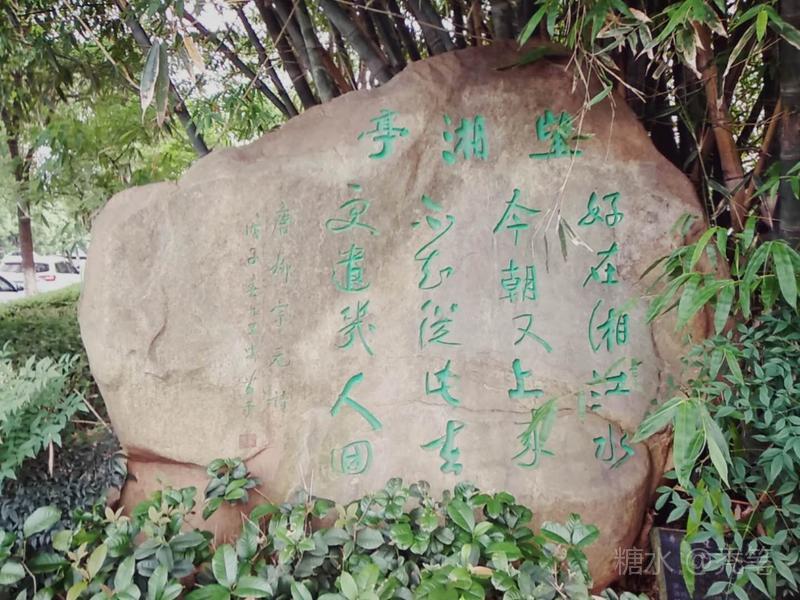 望湘亭
好在湘江水
今朝又上来
不知從此去
更遣幾人回
唐柳宗元詩
糖水 @秃笔